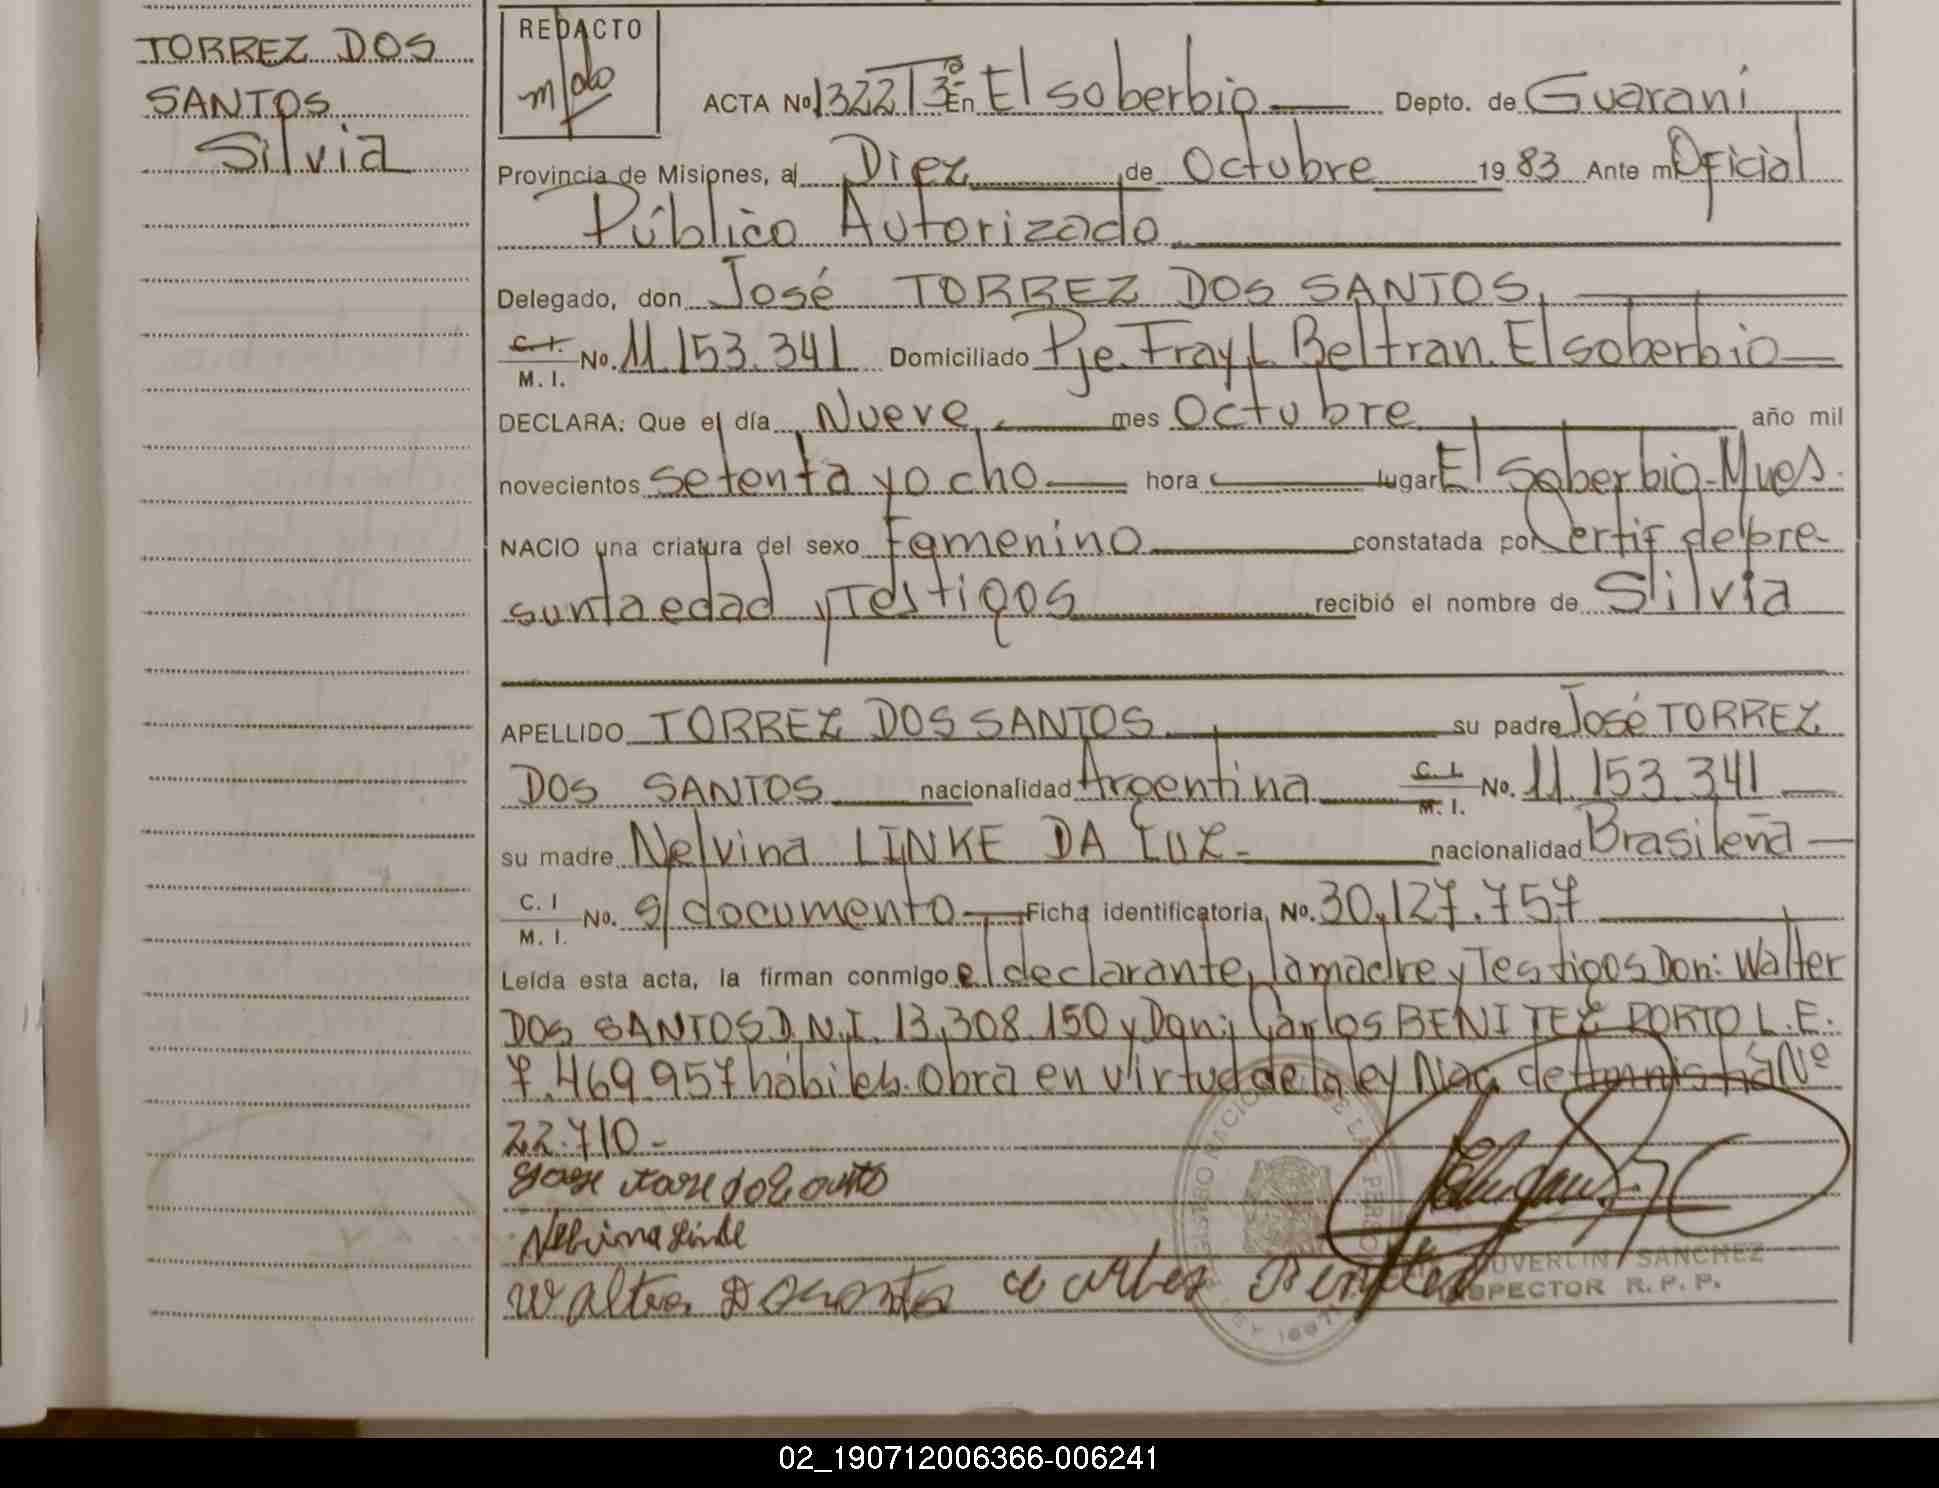 TORREZ DOS
SANTOS
Silvia
REDACTO
ACTA No 1322 T 3º En El soberbio Depto. de Guaraní
Provincia de Misiones, a Diez de Octubre 19 83 Ante mí Oficial
Público Autorizado
Delegado, don José TORREZ DOS SANTOS
C. I. / M. I. No. 11.153.341 Domiciliado Pje. Fray L Beltran. El soberbio
DECLARA: Que el día Nueve mes Octubre año mil
novecientos setenta y ocho hora lugar El soberbio - Mnes.
NACIO una criatura del sexo Femenino constatada por Certif de pre
sunta edad y Testigos recibió el nombre de Silvia
APELLIDO TORREZ DOS SANTOS su padre José TORREZ
DOS SANTOS nacionalidad Argentina C. I. / M. I. No. 11.153.341
su madre Nelvina LINKE DA LUZ - nacionalidad Brasileña
C. I / M. I. No. s/documento Ficha identificatoria, No. 30.127.757
Leída esta acta, la firman conmigo el declarante, la madre y Testigos Don: Walter
DOS SANTOS D.N.I. 13.308.150 y Don: Carlos BENITEZ PORTO L.E.
7.469.957 hábiles. Obra en virtud de la ley Nac. de Amnistía Nº
22.710 -
Nelvina Linke
Walter Carlos Benitez
SANCHEZ
INSPECTOR R. P. P.
02_190712006366-006241